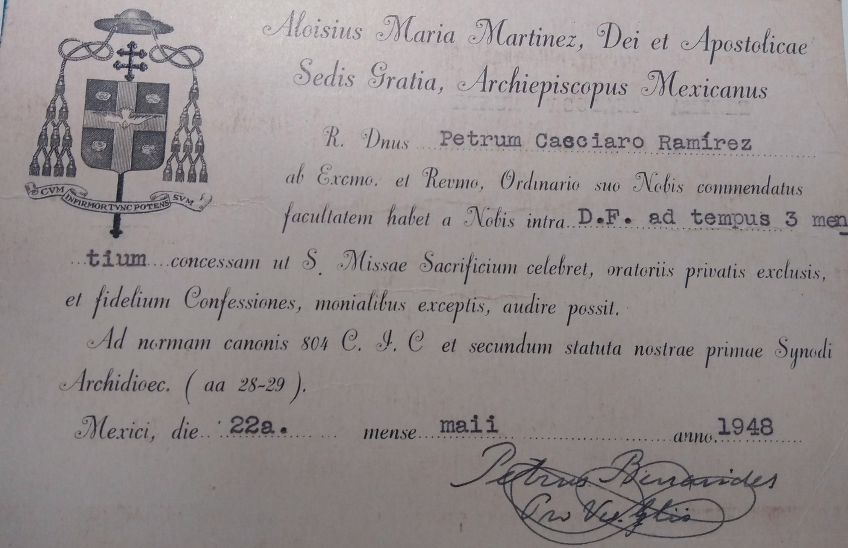 Aloisius Maria Martinez, Dei et Apostolicae
Sedis Gratia, Archiepiscopus Mexicanus
R. Dnus Petrum Casciaro Ramírez
ab Excmo. et Revmo, Ordinario suo Nobis commendatus
facultatem habet a Nobis intra D.F. ad tempus 3 men
tium concessam ut S. Missae Sacrificium celebret, oratoriis privatis exclusis,
et fidelium Confessiones, monialibus exceptis, audire possit.
Ad normam canonis 804 C. I. C et secundum statuta nostrae primae Synodi
Archidioec. ( aa 28-29 ).
Mexici, die 22a. mense maii anno 1948
Petrus Benavides
Pro Vic. Glis
CVM INFIRMOR TVNC POTENS SVM